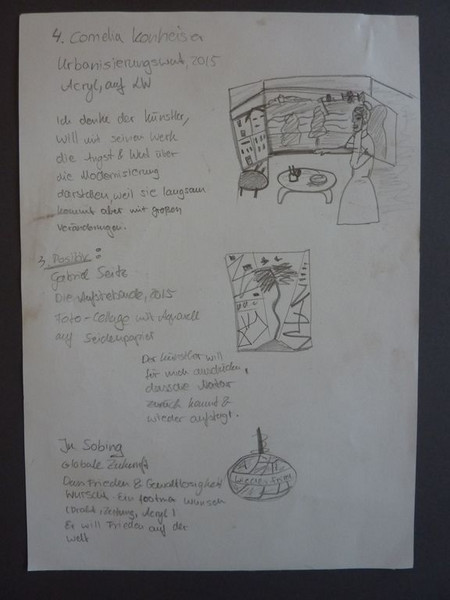 4. Cornelia Konheiser
Urbanisierungswut, 2015
Acryl, auf LW
Ich denke der Künstler,
will mit seinem Werk
die Angst & Wut über
die Modernisierung
darstellen, weil sie langsam
kommt aber mit großen
Veränderungen.
3. Positiv:
Gabriel Seitz
Die Aufstrebende, 2015
Foto-Collage mit Aquarell
auf Seidenpapier
Der Künstler will
für mich ausdrücken,
dass die Natur
zurück kommt &
wieder aufsteigt.
Ju Sobing
Globale Zukunft
Dan Frieden & Gewaltlosigkeit
Wünscht. Ein
(Draht, Zeitung, Acryl)
Er will Frieden auf der
Welt